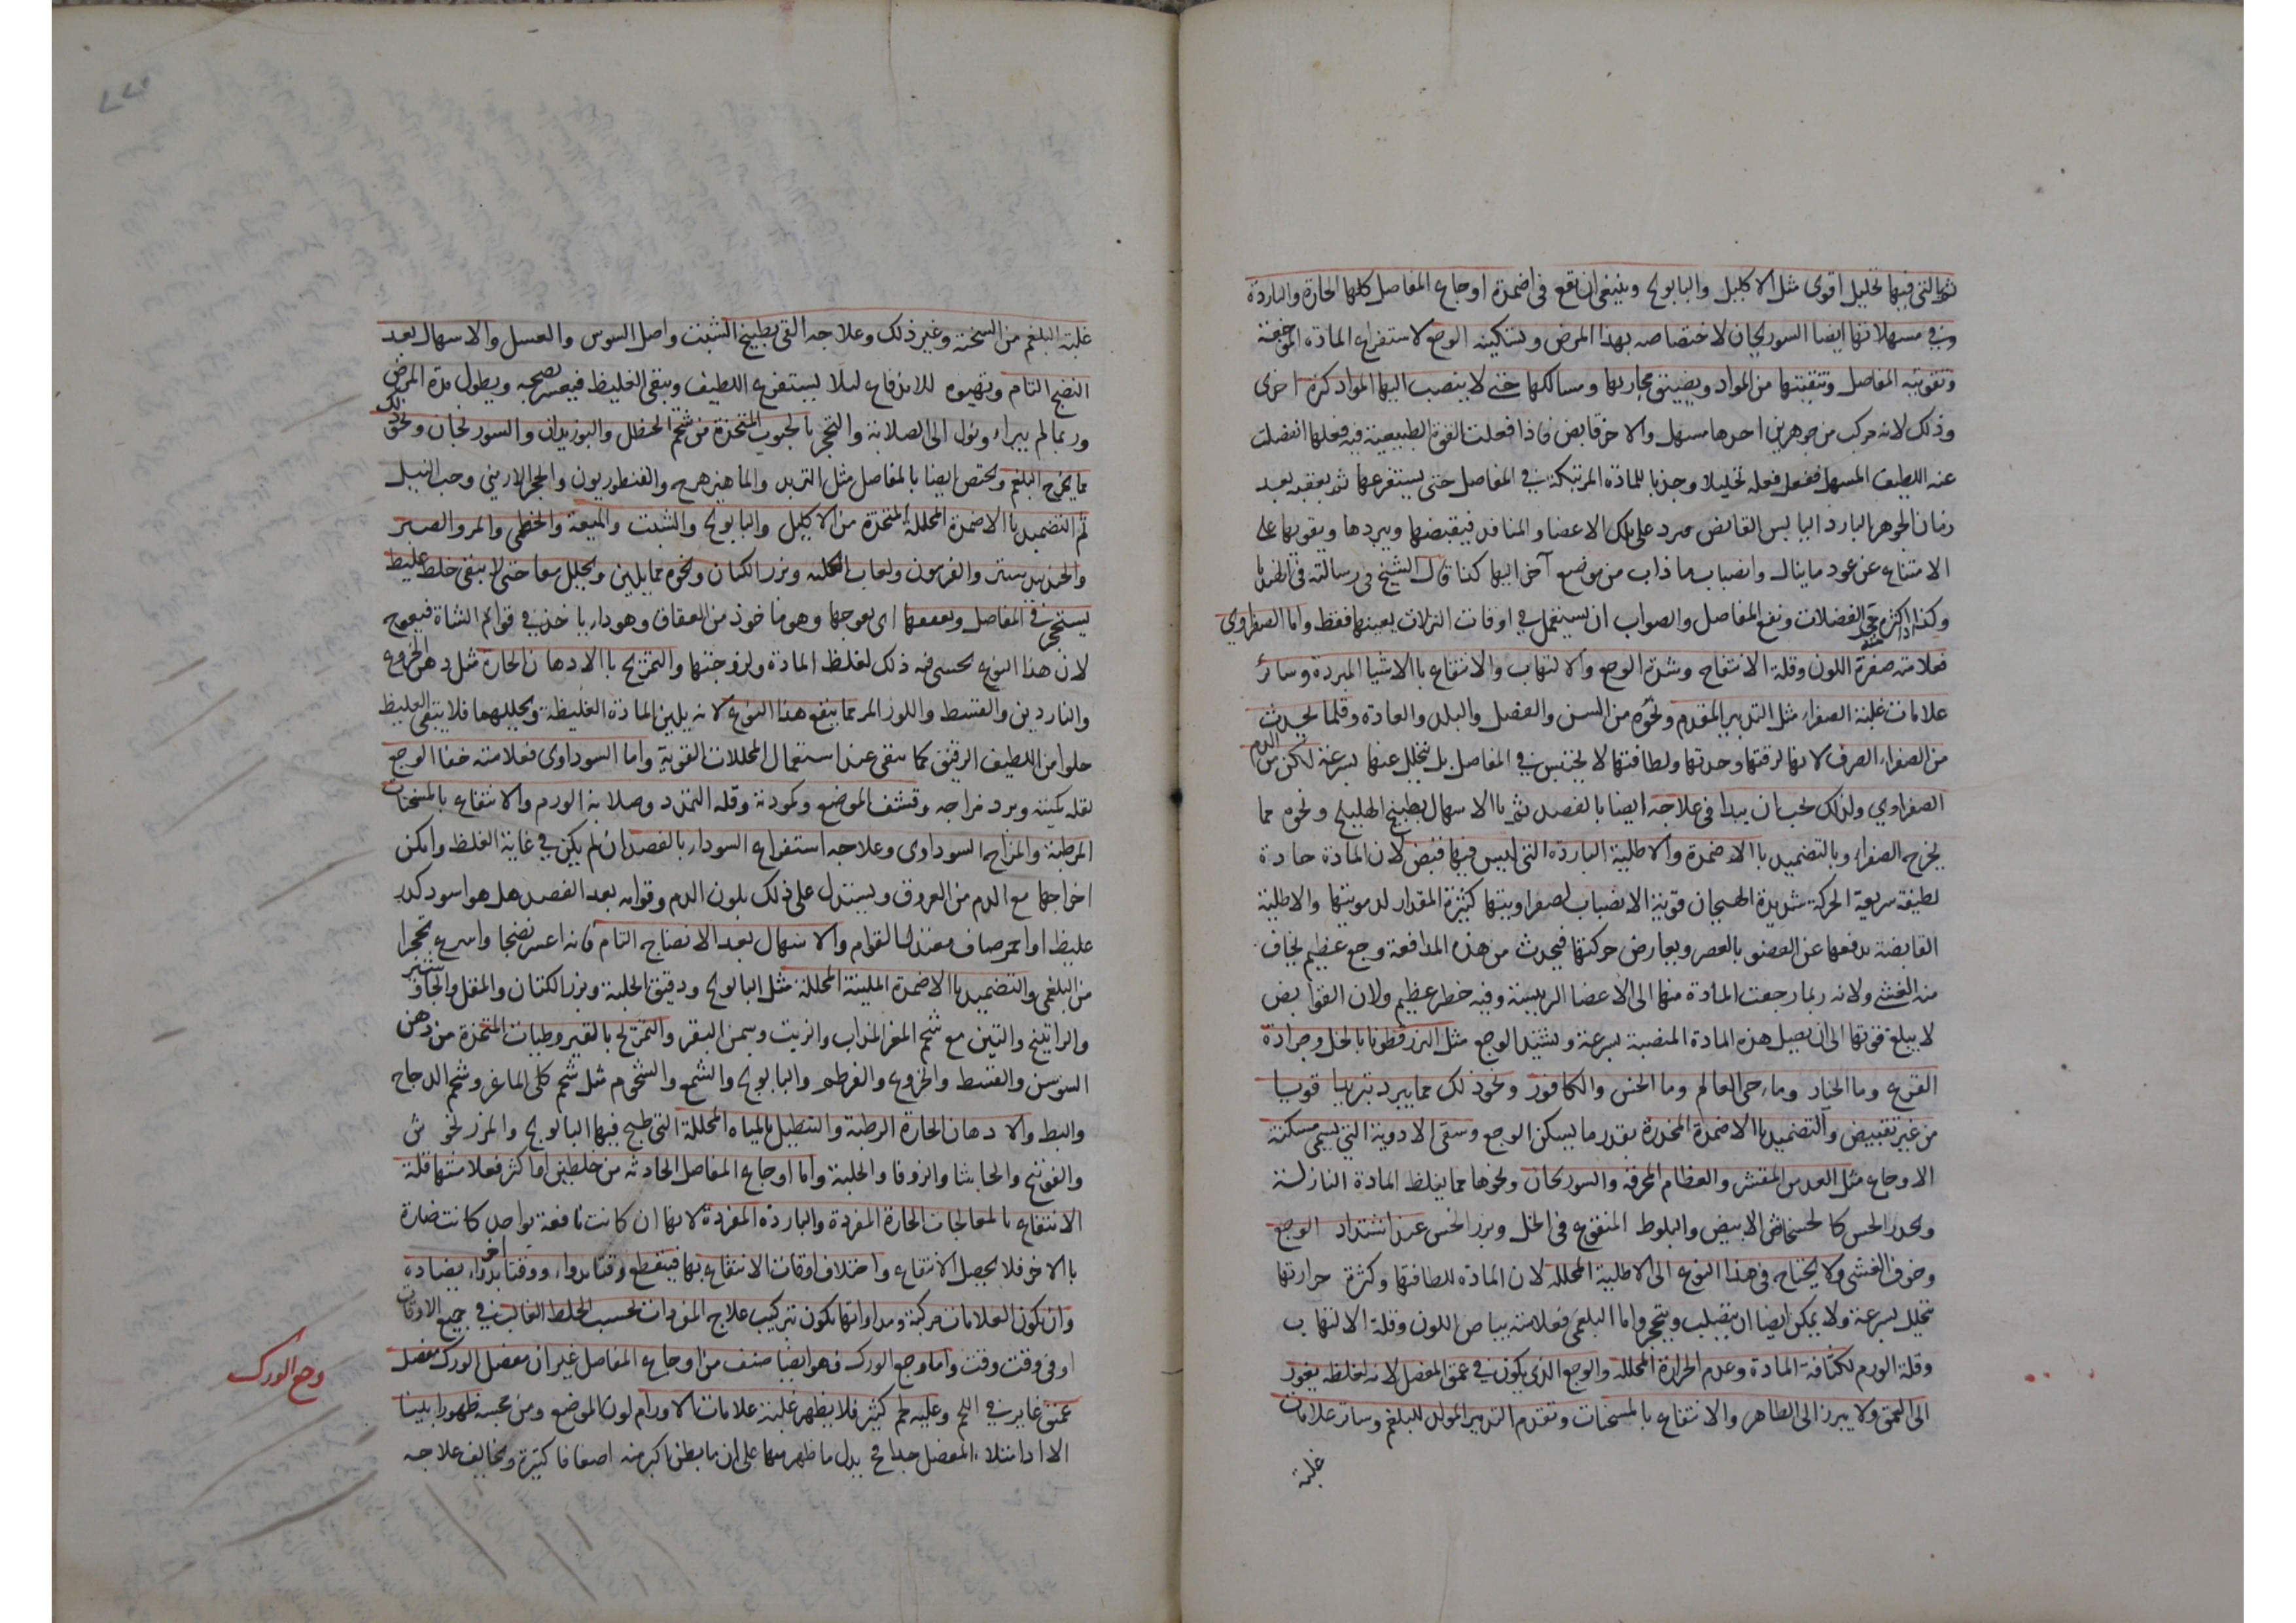 ثم التي فيها تحليل اقوى مثل الاكليل والبابونج وينبغي ان يقع في اضمدة اوجاع المفاصل كلها الحارة والباردة
وفي مسهلاتها ايضا السورنجان لاختصاصه بهذا المرض وتسكينه الوجع لاستفراغ المادة الموجعة
وتقويته المفاصل وتنقيتها من المواد ويضيق مجاريها ومسالكها حتى لا ينصب اليها المواد كرة اخرى
وذلك لانه مركب من جوهرين احدهما مسهل والاخر قابض فاذا فعلت القوة الطبيعية فيه فعلها انفصلت
عنه اللطيف المسهل ففعل فعله تحليلا وجذبا للمادة المرتبكة في المفاصل حتى يستفرغها ثم يعقبه بعد
زمان الجوهر البارد اليابس القابض فيرد على تلك الاعضا والمنافذ فيقبضها ويبردها ويقويها على
الامتناع عن عود ما ينال وانصباب ما ذاب من موضع آخر اليها كذا قال الشيخ في رسالته في الهندبا
الفضلات ونفع المفاصل والصواب ان يستعمل في اوقات النزلات بعينها فقط واما الصفراوي
فعلامته صفرة اللون وقلة الانتفاخ وشدة الوجع والالتهاب والانتفاع بالاشيا المبردة وسائر
علامات غلبة الصفراء مثل التدبير المقدم ونحوه من السن والفصل والبلد والعادة وقلما يحدث
من الصفراء الصرف لانها لرقتها وحدتها ولطافتها لا يحتبس في المفاصل بل يتحلل عنها بسرعة لكن من الدم
الصفراوي ولذلك يجب ان يبدا في علاجه ايضا بالفصد ثم بالاسهال بطبيخ الهليلج ونحوه مما
يخرج الصفراء وبالتضميد بالاضمدة والاطلية الباردة التي ليس فيها قبض لان المادة حادة
لطيفة سريعة الحركة شديدة الهيجان قوية الانصباب لصفراويتها كثيرة المقدار لدمويتها والاطلية
القابضة بدفعها عن العضو بالعصر ويعارض حركتها فيحدث من هذه المدافعة وجع عظيم يخاف
منه الغشي ولانه ربما رجعت المادة منها الى الاعضا الرييسة وفيه خطر عظيم ولان القوابض
لا يبلغ قوتها الى ان يحيل هذه المادة المنصبة بسرعة ويشتد الوجع مثل البزرقطونا بالخل وجرادة
القرع وما الخيار وماء حي العالم وما الخس والكافور ونحو ذلك مما يبرد تبريدا قويا
من غير تقبيض والتضميد بالاضمدة المخدرة بقدر ما يسكن الوجع وسقى الادوية التي يسمى مسكنة
الاوجاع مثل العدس المقشر والعظام المحرقة والسورنجان ونحوها مما يغلظ المادة النازلة
ويخدر الحس كالخشخاش الابيض والبلوط المنقوع في الخل وبزر الخس عند اشتداد الوجع
وخوف الغشي ولا يحتاج في هذا النوع الى الاطلية المحللة لان المادة للطافتها وكثرة حرارتها
تتحلل بسرعة ولا يمكن ايضا ان يتصلب ويتحجر واما البلغمي فعلامته بياض اللون وقلة الالتهاب
وقلة الورم لكثافة المادة وعدم الحرارة المحللة والوجع الذي يكون في عمق المفصل لانه لغلظه يغور
الى العمق ولا يبرز الى الظاهر والانتفاع بالمسخنات وتقدم التدبير المولد للبلغم وسائر علامات
غلبة
غلبة البلغم من السحنة وغير ذلك وعلاجه القى بطبيخ الشبت واصل السوس والعسل والاسهال بعد
النضج التام وتهيوه للاندفاع ليلا يستفرغ اللطيف ويبقى الغليظ فيعسر نضجه ويطول مدة المرض
وربما لم يبراء ويؤل الى الصلابة والتحجر بالحبوب المتخذة من شحم الحنظل والبوزيدان والسورنجان ونحو ذلك
مما يخرج البلغم ويختص ايضا بالمفاصل مثل التربد والماهيزهرج والقنطوريون والحجر الارميني وحب النيل
ثم التضميد بالاضمدة المحللة المتخذة من الاكليل والبابونج والشبت والميعة والخطمى والمر والصبر
والجندبيدستر والفربيون ولعاب الحلبه وبزر الكتان ونحوه مما يلين ويحلل معا حتى لا يبقى خلط غليظ
يستحجر في المفاصل ويعقفها اى يعوجها وهو ماخوذ من العقاف وهو داء ياخذ في قوائم الشاة فيعوج
لان هذا النوع يخشى فيه ذلك لغلظ المادة ولزوجتها والتمريخ بالادهان الحارة مثل دهن الخروع
والناردين والقسط واللوز المر مما ينفع هذا النوع لانه يلين المادة الغليظة ويحللها فلا يبقى الغليظ
خلوا من اللطيف الرقيق كما يبقى عند استعمال المحللات القوية واما السوداوى فعلامته خفا الوجع
لقلة كميته وبرد مزاجه وقشف الموضع وكمودته وقلة التمدد وصلابة الورم والانتفاع بالمسخنات
المرطبة والمزاج السوداوى وعلاجه استفراغ السوداء بالفصد ان لم يكن في غاية الغلظ وامكن
اخراجها مع الدم من العروق ويستدل على ذلك بلون الدم وقوامه بعد الفصد هل هو اسود كدر
غليظ او احمر صاف معتدل القوام والاسهال بعد الانضاج التام فانه اعسر نضجا واسرع تحجرا
من البلغمى والتضميد بالاضمدة الملينة المحللة مثل البابونج ودقيق الحلبة وبزر الكتان والمقل والجاوشير
والراتينج والتين مع شحم المعز المذاب والزيت وسمن البقر والتمريخ بالقيروطيات المتخذة من دهن
السوسن والقسط والخروع والقرطم والبابونج والشمع والشحوم مثل شحم كلى الماعز وشحم الدجاج
والبط والادهان الحارة الرطبة والتنطيل بالمياه المحللة التى طبخ فيها البابونج والمرزنخوش
والفوتنج والحاشا والزوفا والحلبة واما اوجاع المفاصل الحادثه من خلطين او اكثر فعلامتها قلة
الانتفاع بالمعالجات الحارة المفردة والباردة المفردة لانها ان كانت نافعة بواحد كانت ضارة
بالاخر فلا يحصل الانتفاع واختلاف اوقات الانتفاع بها فينقطع وقتا بدواء ووقتا بدواء اخر يضاده
وان يكون العلامات مركبة ومداواتها يكون بتركيب علاج المفردات بحسب الخلط الغالب في جميع الاوقات
او في وقت وقت واما وجع الورك فهو ايضا صنف من اوجاع المفاصل غير ان مفصل الورك مفصل
وجع الورك
عميق غاير في اللحم وعليه لحم كثير فلا يظهر غلبة علامات الاورام لون الموضع ومن مجسه ظهورا بينا
الا اذا امتلاء المفصل جدا فح يدل ما ظهر منها على ان ما بطن اكبر منه اضعافا كثيرة ويخالف علاجه